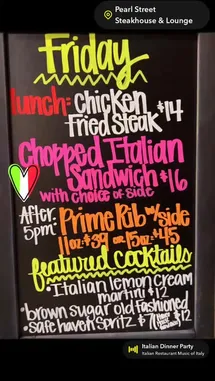 Pearl Street
Steakhouse & Lounge
Friday
lunch: chicken $14
fried steak
Chopped Italian
Sandwich $16
with choice of side
After Prime Rib w/ side
5pm: 11oz $39 or 15oz $45
featured cocktails
• Italian lemon cream
martini $12
• brown sugar old fashioned
• safe haven spritz $7 $12
Italian Dinner Party
Italian Restaurant Music of Italy